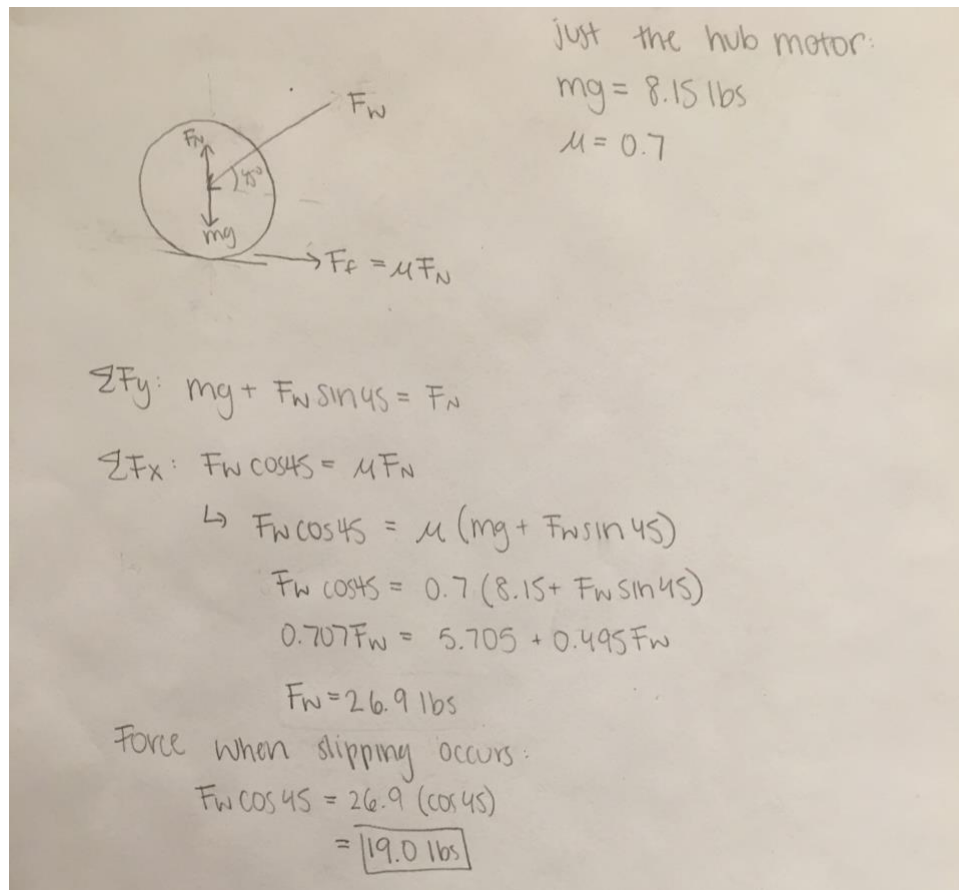 just the hub motor:
mg = 8.15 lbs
μ = 0.7
F_W
F_N
45°
mg
F_f = μF_N
ΣFy: mg + F_W sin45 = F_N
ΣFx: F_W cos45 = μF_N
↳ F_W cos45 = μ(mg + F_W sin45)
F_W cos45 = 0.7(8.15 + F_W sin45)
0.707F_W = 5.705 + 0.495F_W
F_W = 26.9 lbs
Force when slipping occurs:
F_W cos45 = 26.9 (cos45)
= 19.0 lbs